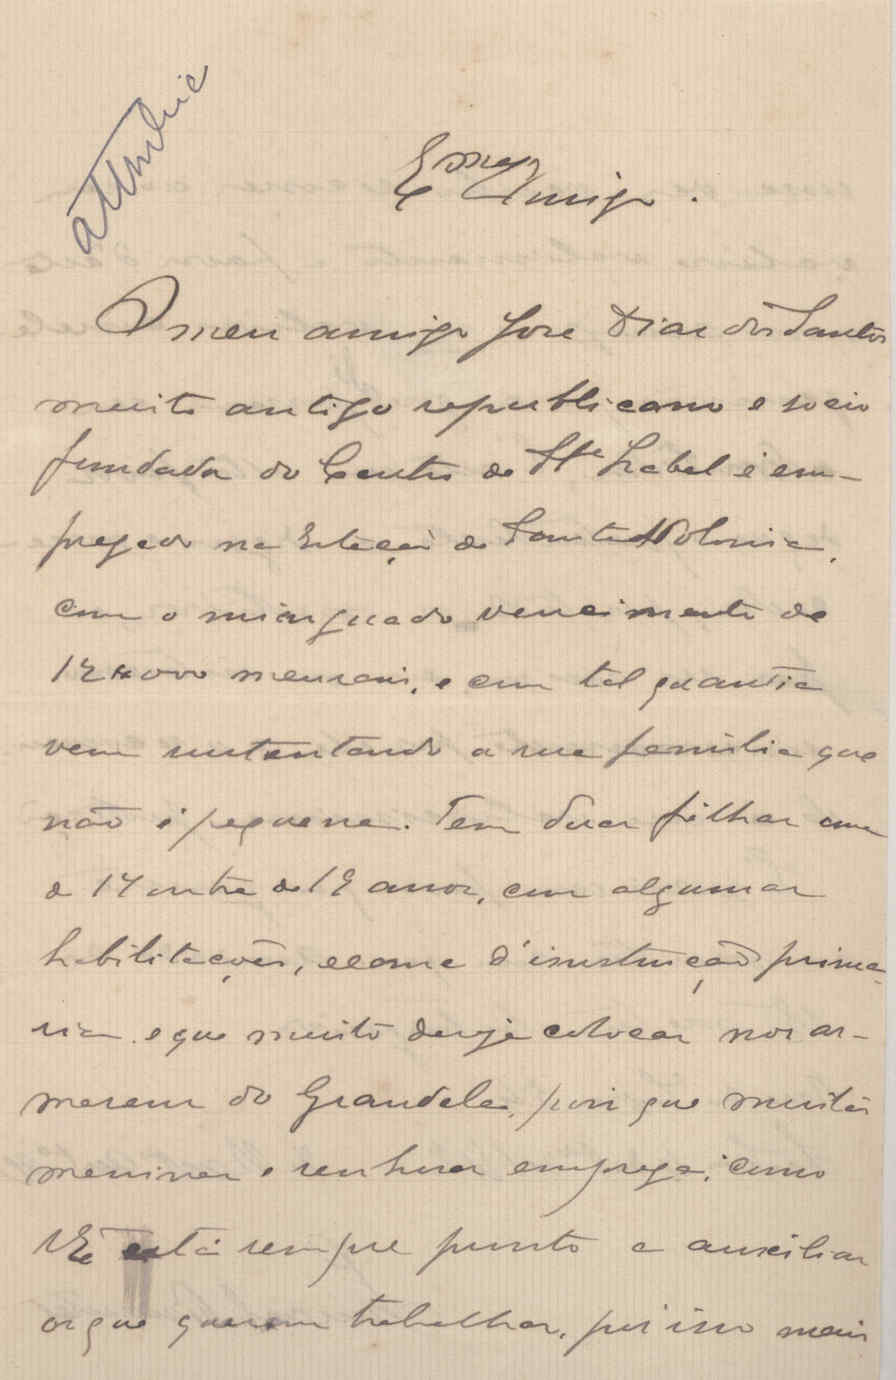 Exmo Amigo.
O meu amigo José Dias dos Santos
muito antigo republicano e socio
fundador do Centro de Sta Izabel é em-
pregado na Estação de Santa Apolonia,
com o minguado vencimento de
12$000 mensais, e com tal quantia
vem sustentando a sua familia que
não é pequena. Tem duas filhas uma
de 17 outra de 19 annos, com algumas
habilitações, exame d'instrucção prima-
ria e que muito deseja colocar nos ar-
mazens do Grandela, pois que muitas
meninas e senhoras emprega; como
V. Exa está sempre pronto a auxiliar
os que querem trabalhar, por isso mais